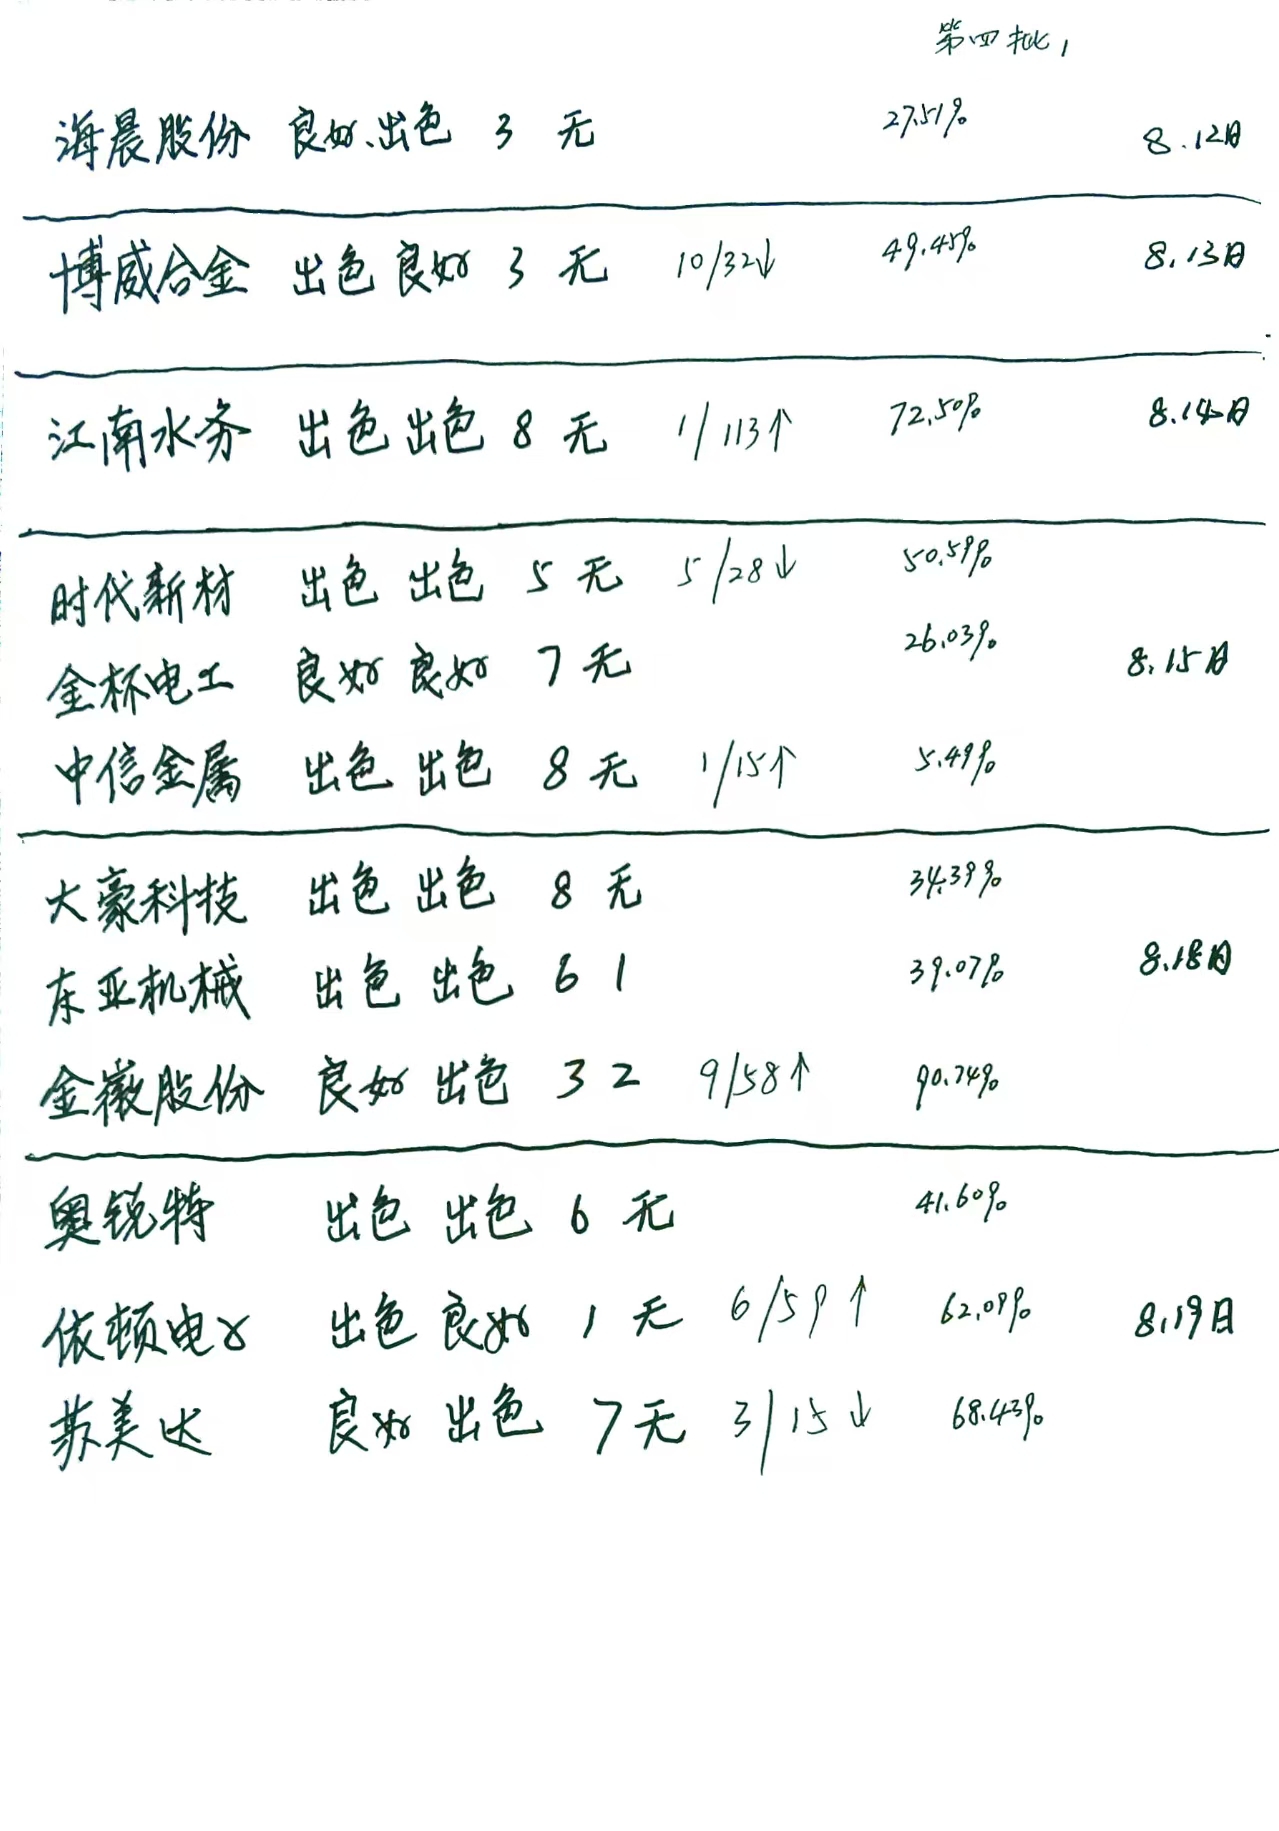 第四批1
海晨股份 良好、出色 3 无 27.51% 8.12日
博威合金 出色 良好 3 无 10/32↓ 49.45% 8.13日
江南水务 出色 出色 8 无 1/113↑ 72.50% 8.14日
时代新材 出色 出色 5 无 5/28↓ 50.59%
金杯电工 良好 良好 7 无 26.03% 8.15日
中信金属 出色 出色 8 无 1/15↑ 5.49%
大豪科技 出色 出色 8 无 34.39%
东亚机械 出色 出色 6 1 39.07% 8.18日
金徽股份 良好 出色 3 2 9/58↑ 90.74%
奥锐特 出色 出色 6 无 41.60%
依顿电子 出色 良好 1 无 6/59↑ 62.09% 8.19日
苏美达 良好 出色 7 无 3/15↓ 68.43%